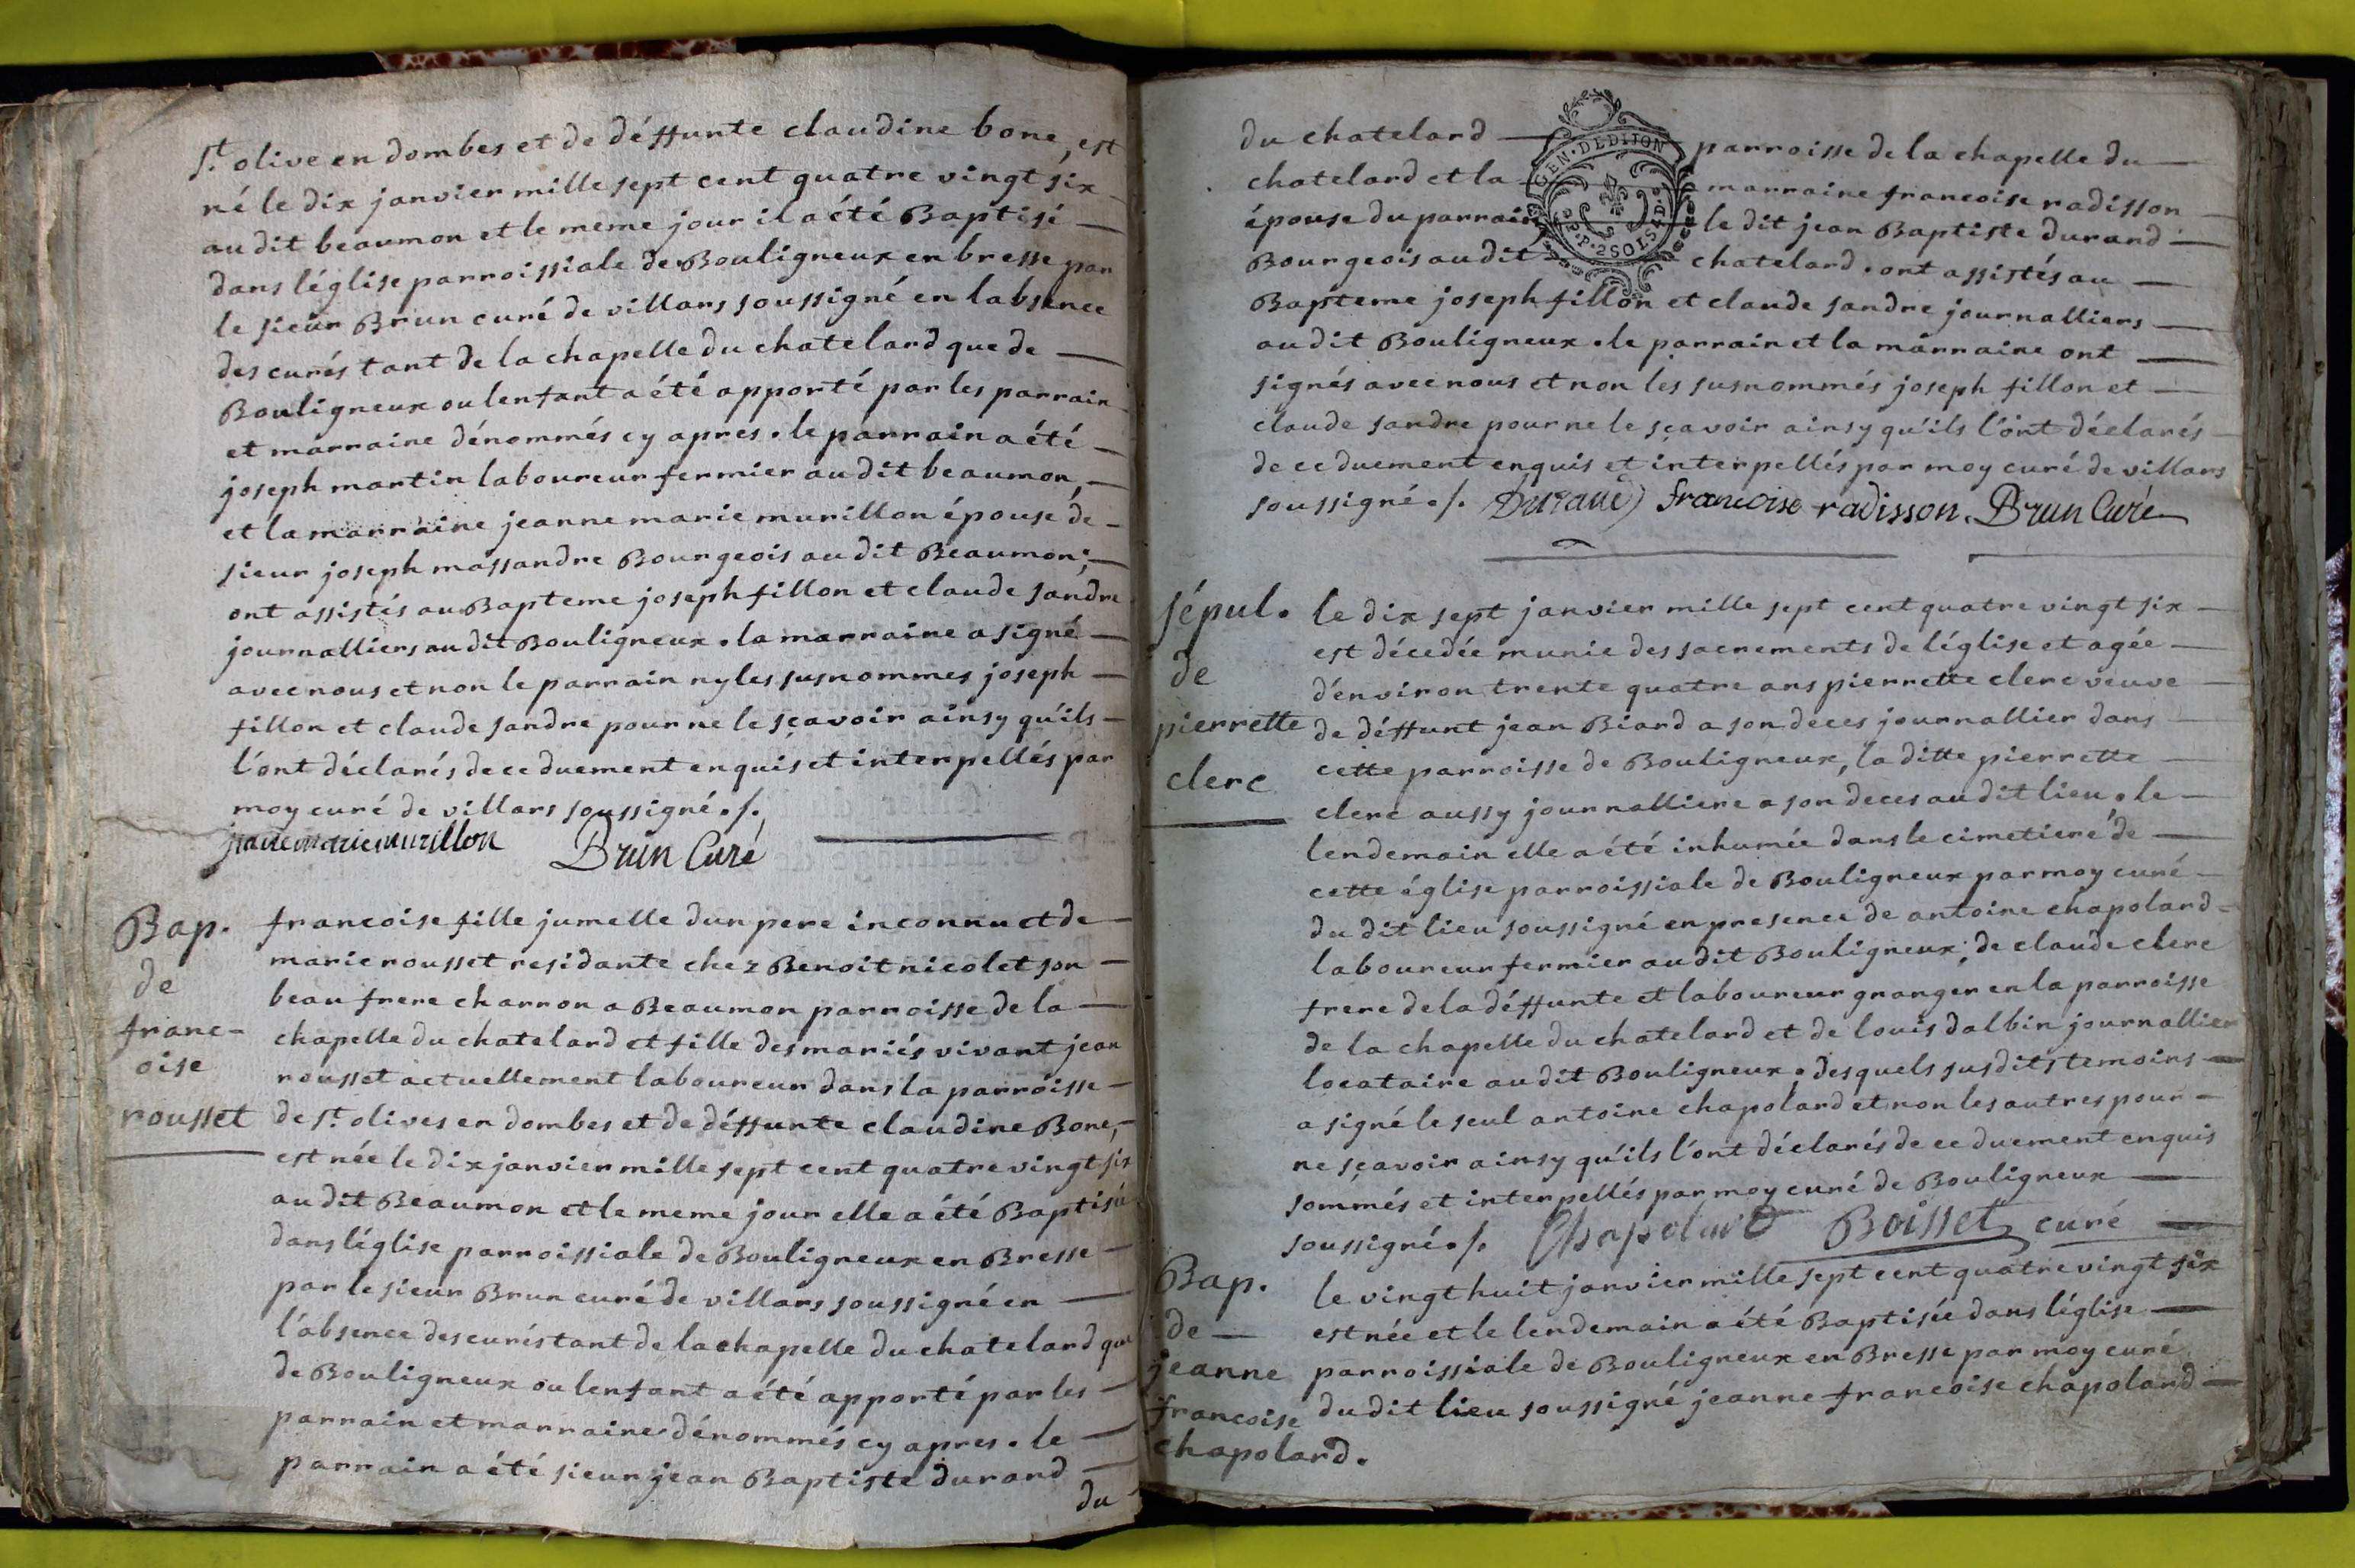 St. olive en dombes et de déffunte claudine bone, est
né le dix janvier mille sept cent quatre vingt six
au dit beaumon et le meme jour il a été Baptisé
dans léglise parroissiale de Bouligneux en bresse par
le sieur Brun curé de villars soussigné en labsence
des curés tant de la chapelle du chatelard que de
Bouligneux ou lenfant a été apporté par les parrain
et marraine dénommés cy apres. le parrain a été
joseph martin laboureur fermier au dit beaumon,
et la marraine jeanne marie murillon épouse de
sieur joseph massandre Bourgeois au dit Beaumon;
ont assistés au Bapteme joseph fillon et claude sandre
journalliers au dit Bouligneux. la marraine a signé
avec nous et non le parrain ny les susnommes joseph
fillon et claude sandre pour ne le sçavoir ainsy qu'ils
l'ont déclarés de ce duement enquis et interpellés par
moy curé de villars soussigné./.
jeanne marie murillon Brun Curé
Bap.
de
franc-
oise
rousset
francoise fille jumelle dun pere inconnu et de
marie rousset residante chez Benoit nicolet son
beau frere charron a Beaumon parroisse de la
chapelle du chatelard et fille des mariés vivant jean
rousset actuellement laboureur dans la parroisse
de St. olives en dombes et de déffunte claudine Bone,
est née le dix janvier mille sept cent quatre vingt six
au dit Beaumon et le meme jour elle a été Baptisée
dans léglise parroissiale de Bouligneux en Bresse
par le sieur Brun curé de villars soussigné en
l'absence des curés tant de la chapelle du chatelard que
de Bouligneux ou lenfant a été apporté par les
parrain et marraine dénommés cy apres. le
parrain a été sieur jean Baptiste durand
du
du chatelard parroisse de la chapelle du
chatelard et la marraine francoise radisson
épouse du parrain le dit jean Baptiste durand
Bourgeois au dit chatelard. ont assistés au
GEN. DE DIJON
P.P. 2 SOLS
Bapteme joseph fillon et claude sandre journalliers
au dit Bouligneux. le parrain et la marraine ont
signés avec nous et non les susnommés joseph fillon et
claude sandre pour ne le sçavoir ainsy qu'ils l'ont déclarés
de ce duement enquis et interpellés par moy curé de villars
soussigné./. Durand francoise radisson. Brun Curé
sépul.
de
pierrette
clerc
le dix sept janvier mille sept cent quatre vingt six
est décedée munie des sacrements de léglise et agée
d'environ trente quatre ans pierrette clerc veuve
de déffunt jean Biard a son deces journallier dans
cette parroisse de Bouligneux, la ditte pierrette
clerc aussy journalliere a son deces au dit lieu. le
lendemain elle a été inhumée dans le cimetiere de
cette église parroissiale de Bouligneux par moy curé
du dit lieu soussigné en presence de antoine chapolard
laboureur fermier au dit Bouligneux; de claude clerc
frere de la déffunte et laboureur granger en la parroisse
de la chapelle du chatelard et de louis dalbin journallier
locataire au dit Bouligneux. desquels susdits temoins
a signé le seul antoine chapolard et non les autres pour
ne sçavoir ainsy qu'ils l'ont déclarés de ce duement enquis
sommés et interpellés par moy curé de Bouligneux
soussigné./. Chapolard Boisset curé
Bap.
de
jeanne
francoise
chapolard.
le vingt huit janvier mille sept cent quatre vingt six
est née et le lendemain a été Baptisée dans léglise
parroissiale de Bouligneux en Bresse par moy curé
du dit lieu soussigné jeanne francoise chapolard